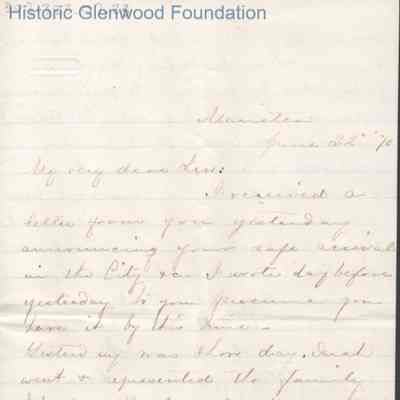 Historic Glenwood Foundation
Manistee
June 22nd '70
My very dear Lew:
I received a
letter from you yesterday
announcing your safe arrival
in the City &c. I wrote day before
yesterday to you presume you
have it by this time.
was show day.
went & represented the family